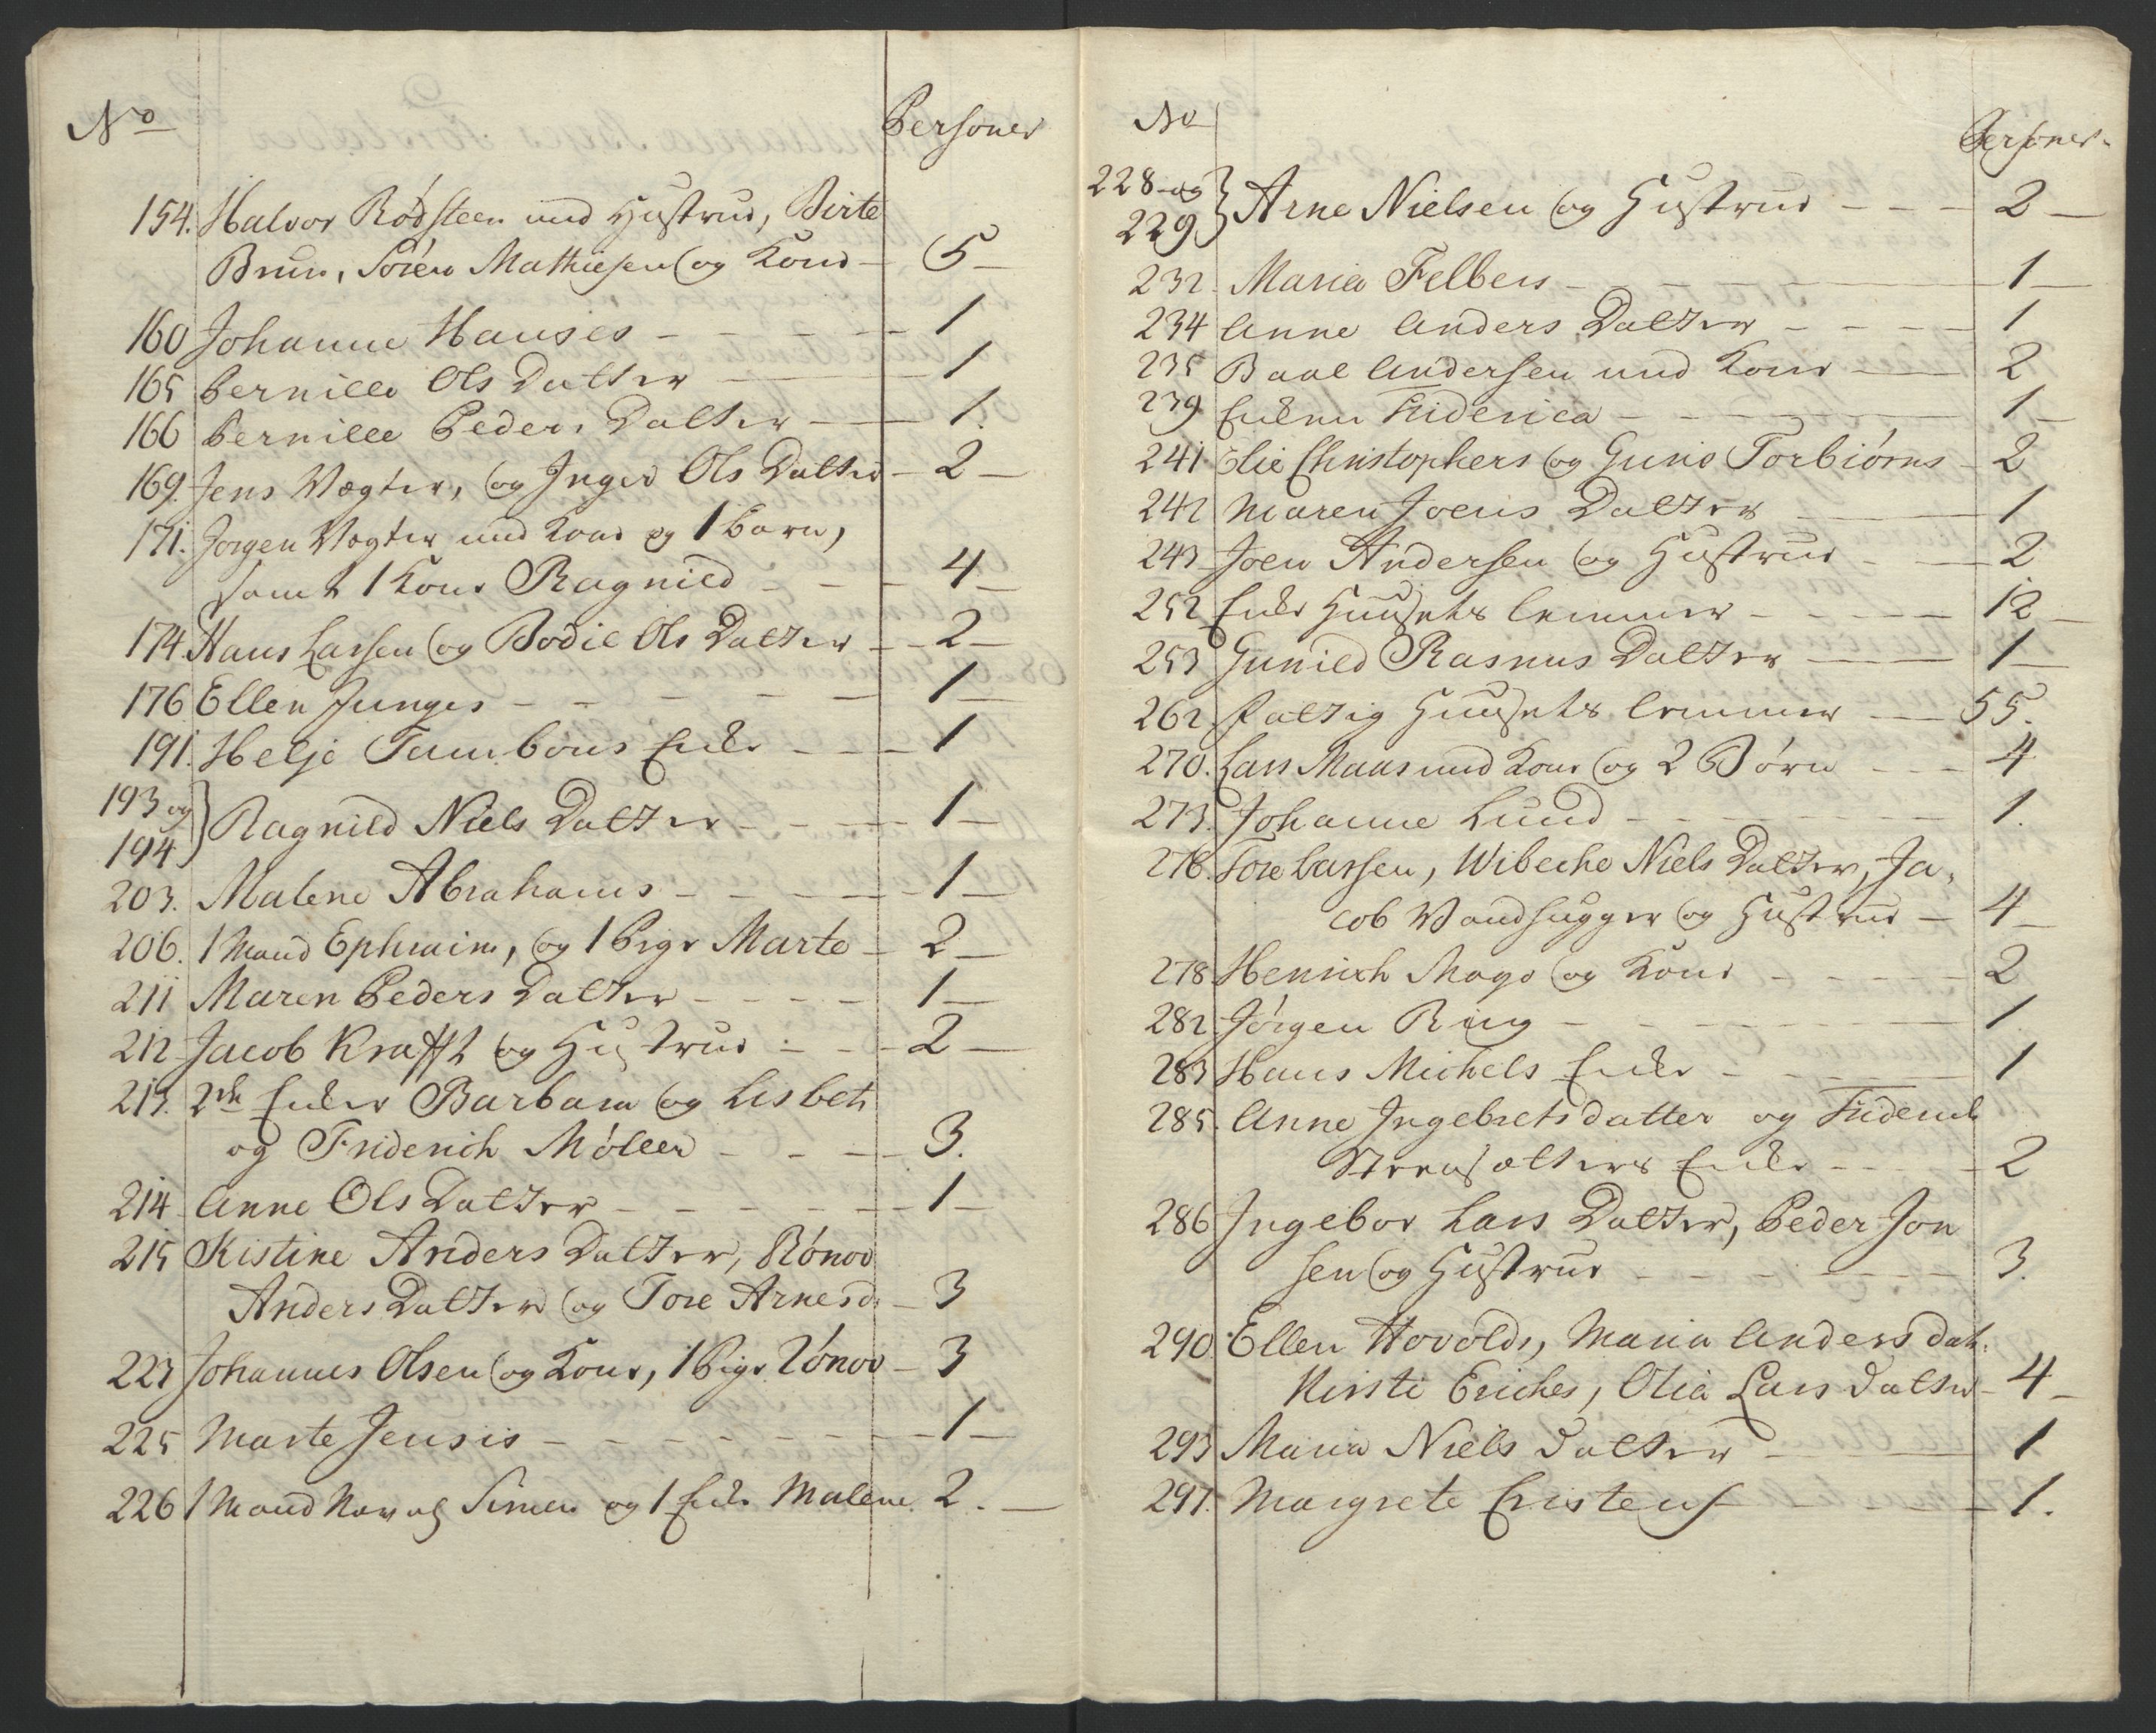 No Personer
154. Halvor Rødsteen med Hustrue, Birte
Brun, Sören Mathiesen og Kone – 5 –
160 Johanne Hanses – 1
165 Pernille Ols Datter – 1
166 Pernille Peders Datter – 1.
169. Jens Vægter, og Inger Ols Datter – 2 –
171. Jørgen Vægter med Kone og 1 Barn,
samt 1 Kone Ragnild – 4 –
174. Hans Larsen og Bodil Ols Datter – 2 –
176 Ellen Junges – 1 –
191. Helje Tambours Enke – 1
193 og
194 } Ragnild Niels Datter – 1 –
203. Malene Abrahams – 1 –
206. 1 Mand Ephraim, og 1 Pige Marte – 2 –
211 Maren Peders Datter – 1 –
212 Jacob Krafft og Hustrue – 2 –
213. 2de Enker Barbara og Lisbet
og Friderich Møller – 3.
214 Anne Ols Datter – 1 –
215 Kistine Anders Datter, Rønov
Anders Datter og Tore Arnesd. – 3
223 Johannes Olsen og Kone, 1 Pige Rønov – 3
225 Marte Jensis – 1 –
226 1 Mand Simen og 1 Enke Malene. 2. –
No Personer.
228 og
229 } Arne Nielsen og Hustrue – 2 –
232. Maria Felbers – 1 –
234 Anne Anders Datter – 1
235 Paal Andersen med Kone – 2
239 Enken Friderica – 1 –
241. Olie Christophers og Guno Torbiørns – 2
242 Maren Joens Datter – 1
243 Joen Andersen og Hustrue – 2
252 Enke Huusets Lemmer – 12 –
253 Gunild Rasmus Datter – 1 –
262. Fattig Huusets Lemmer – 55.
270. Lars Maas med Kone og 2 Børn – 4
273. Johanne Lund – 1.
276. Tore Larsen, Wibeche Niels Datter, Ja-
cob Vandsugger og Hustrue – 4 –
278 Henrich Mago og Kone – 2
282. Jörgen Ring – 1
283 Hans Michels Enke – 1
285. Anne Ingebretsdatter og Friderich
Enke – 2
286 Ingebor Lars Datter, Peder Jon
sen og Hustrue – 3.
290. Ellen Hovolds, Maria Anders dat.
Kirsti Eriches, Olia Lars Datter – 4 –
293 Maria Niels Datter – 1
297. Margrete Cristens – 1.